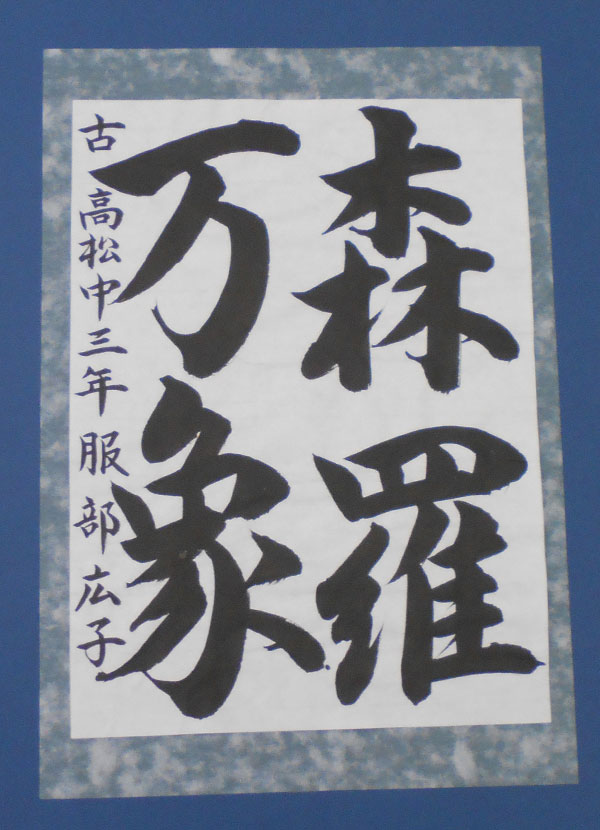 森羅
万象
古高松中三年服部広子